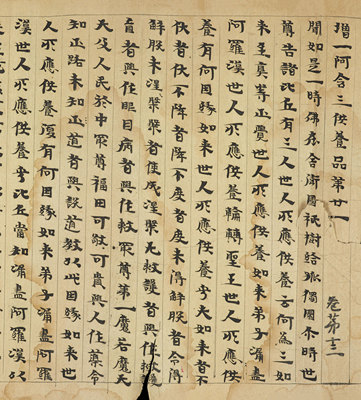 卷第十二
增一阿含三供養品第廿一
聞如是一時佛在舍衛國祇樹給孤獨園尒時世
尊告諸比丘有三人世人所應供養云何為三如
來至真等正覺世人所應供養如來弟子漏盡
阿羅漢世人所應供養輪轉聖王世人所應供
養有何因緣如來世人所應供養夫如來者不
伏者伏不降者降不度者度未得解脫者令得
解脫未涅槃者使成涅槃无救護
盲者與作眼目病者與作救最尊第一魔若魔天
天及人民於中最尊福田可敬可貴與人作導令
知正路未知正道者與說道教以此因緣如來世
人所應供養復有何因緣如來弟子漏盡阿羅
漢世人所應供養比丘當知漏盡阿羅漢以